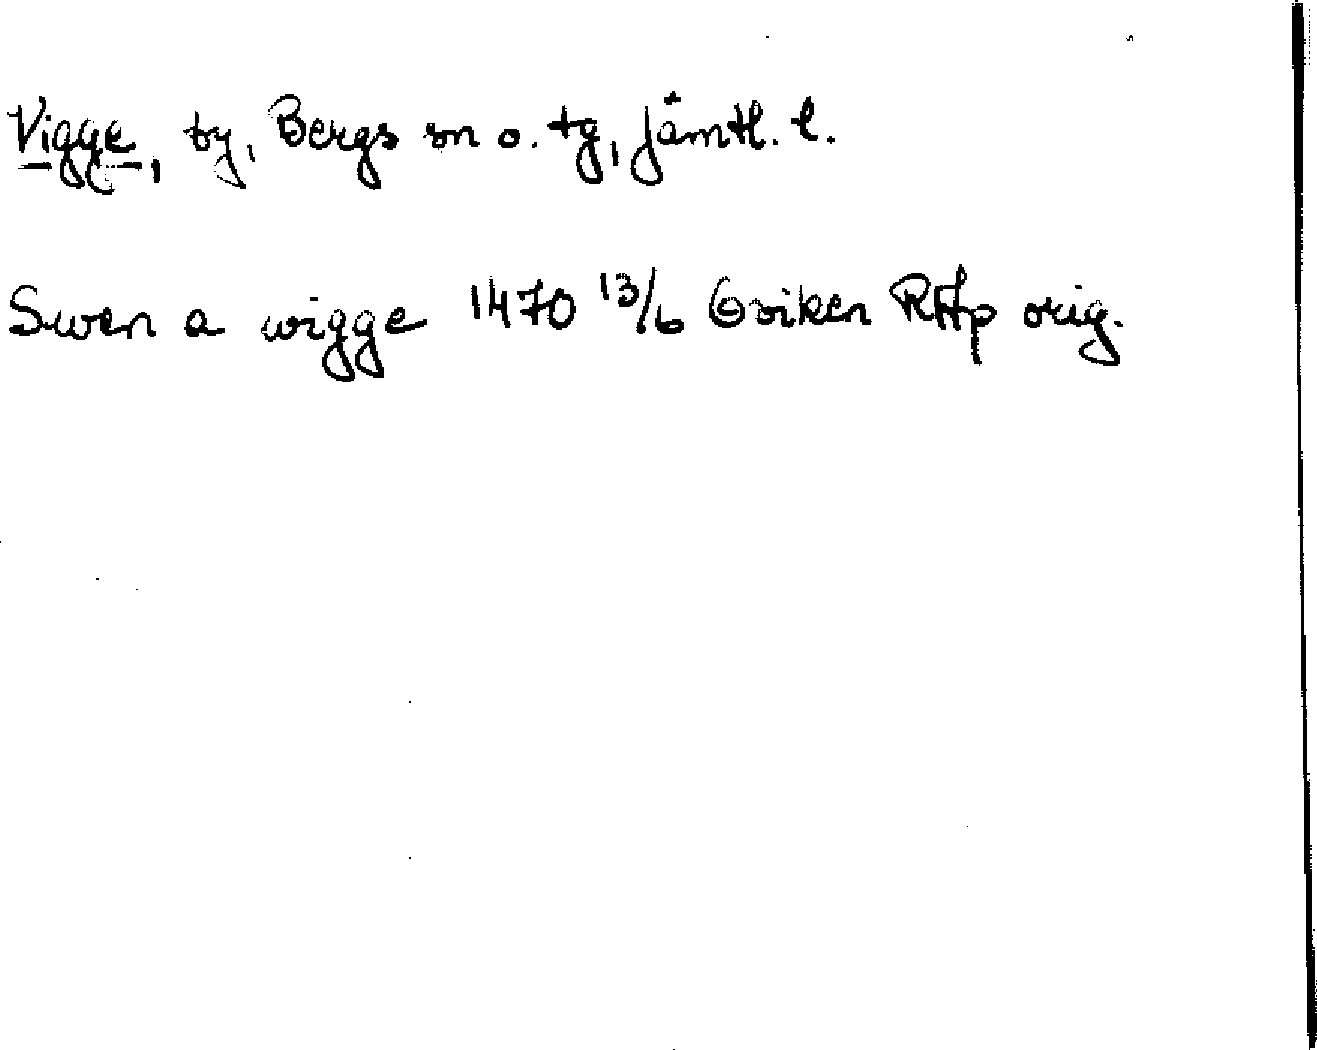 Vigge, by, Bergs sn o. tg, Jämtl. l.
Swen a wigge 1470 13/6 Oviken RAp orig.